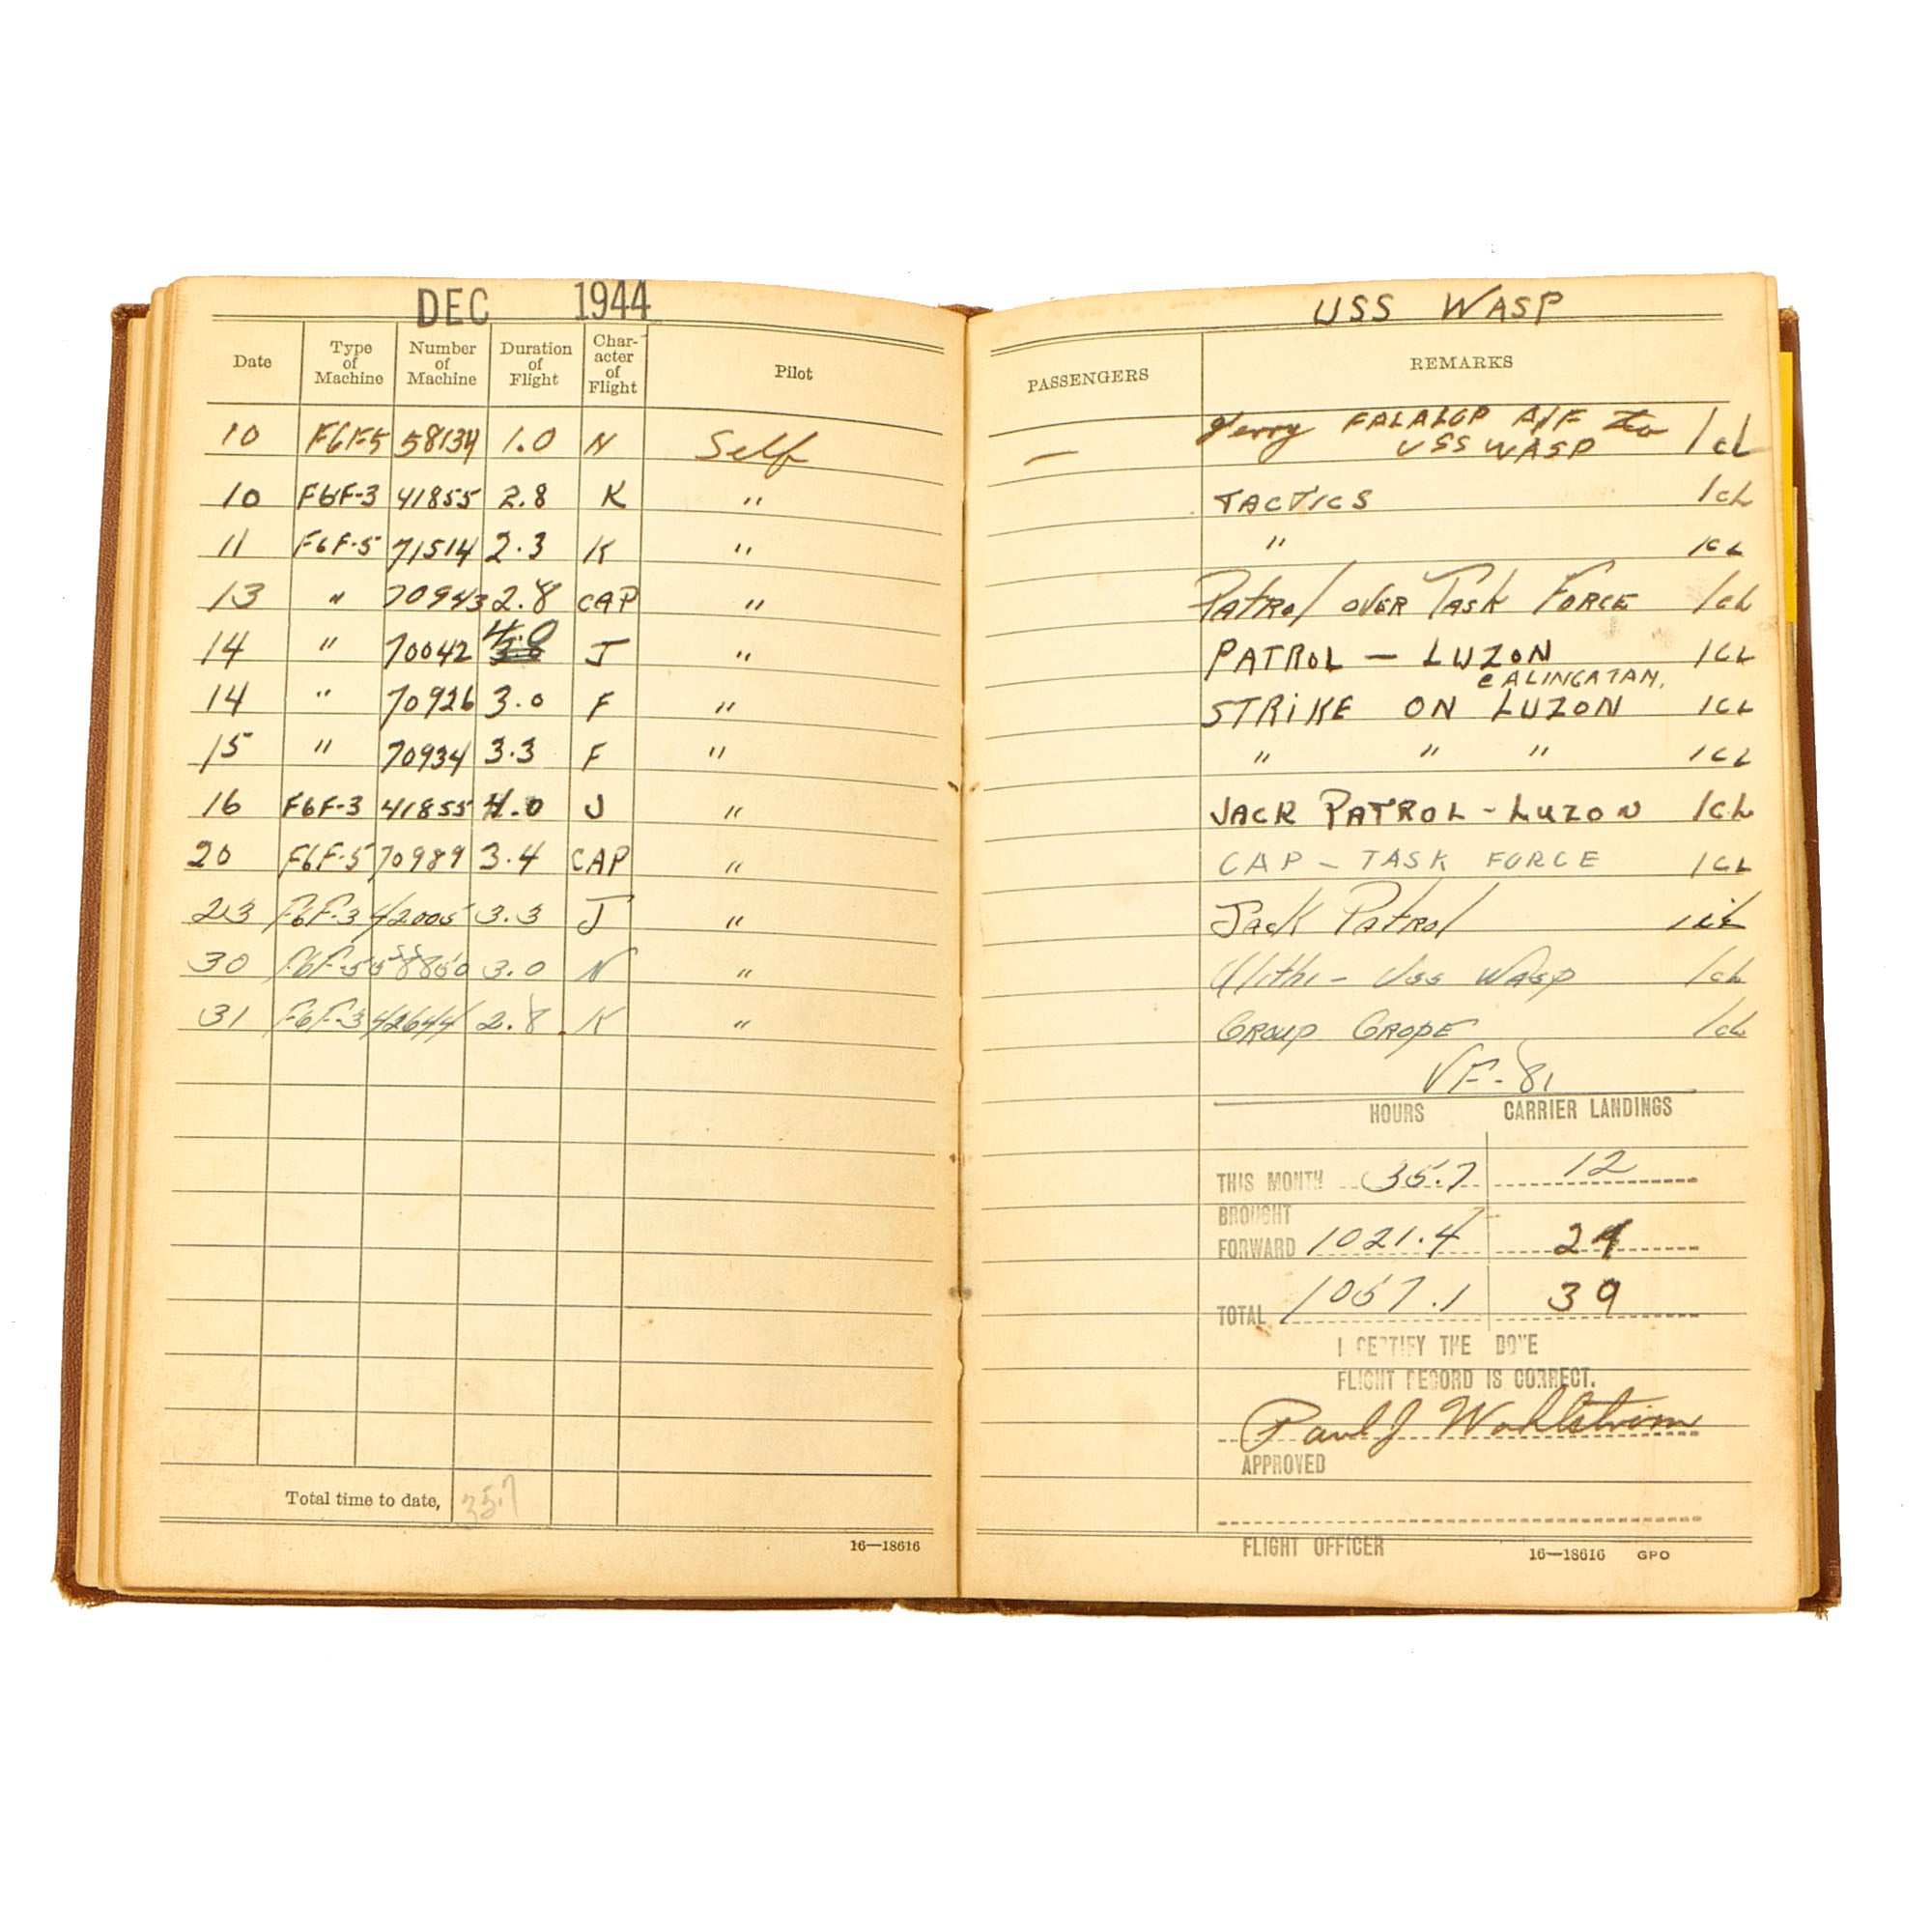 DEC 1944
Date Type of Machine Number of Machine Duration of Flight Char-acter of Flight Pilot
10 F6F-5 58134 1.0 N Self
10 F6F-3 41855 2.8 K "
11 F6F-5 71514 2.3 K "
13 " 70943 2.8 CAP "
14 " 70042 4.0 J "
14 " 70926 3.0 F "
15 " 70934 3.3 F "
16 F6F-3 41855 4.0 J "
20 F6F-5 70989 3.4 CAP "
23 F6F-3 42005 3.3 J "
30 F6F-5 58850 3.0 N "
31 F6F-3 42644 2.8 K "
Total time to date, 35.7
16—18616
USS WASP
PASSENGERS REMARKS
— Ferry FALALOP A/F to 1CL
USS WASP
TACTICS 1CL
" 1CL
Patrol over Task Force 1CL
PATROL — LUZON 1CL
STRIKE ON LUZON 1CL
" " " 1CL
JACK PATROL - LUZON 1CL
CAP - TASK FORCE 1CL
Jack Patrol
Ulithi - USS WASP 1CL
GROUP GROPE 1CL
VF-81
HOURS CARRIER LANDINGS
THIS MONTH 35.7 12
BROUGHT
FORWARD 1021.4
TOTAL 1057.1 39
I CERTIFY THE BOVE
FLIGHT RECORD IS CORRECT.
Paul J Wahlstrom
APPROVED
FLIGHT OFFICER
16—18616 GPO